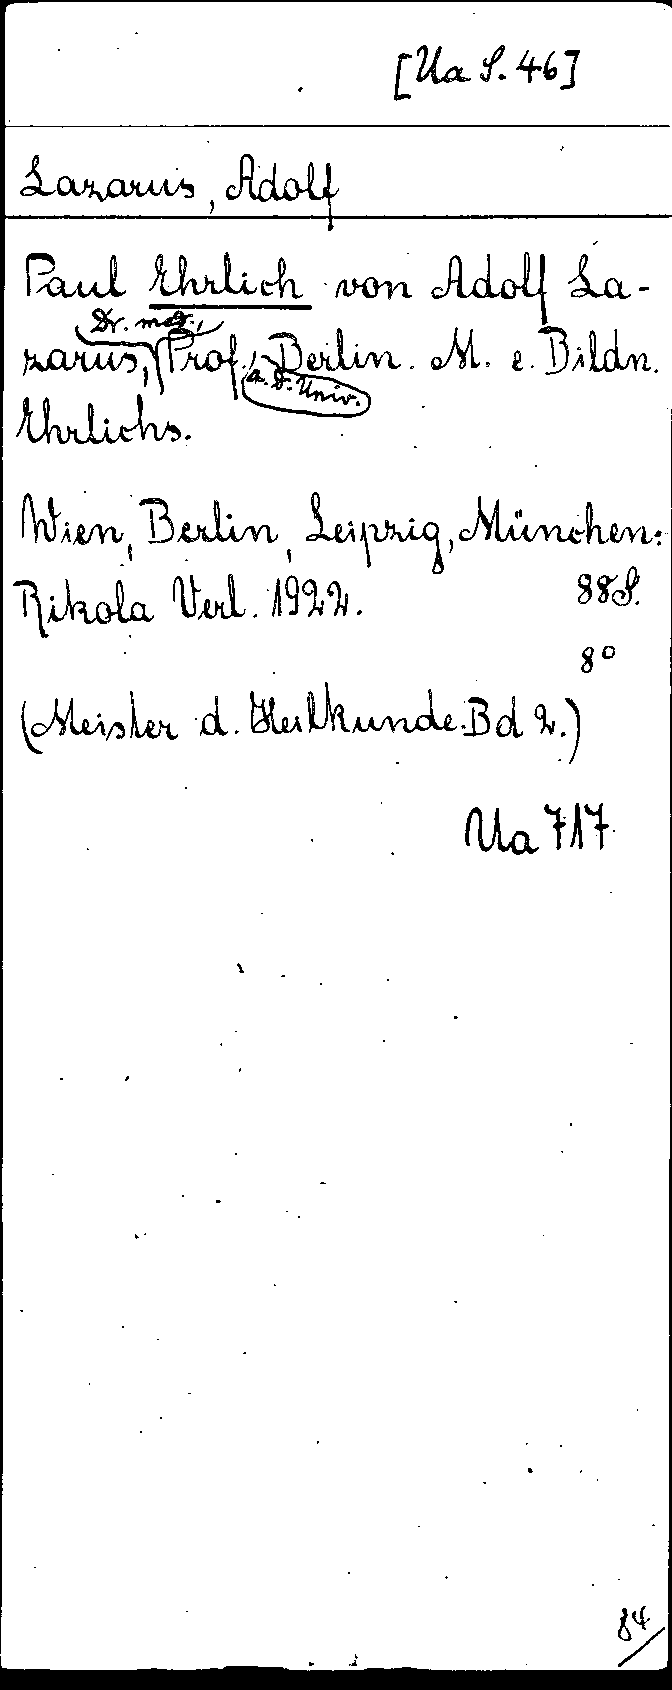 [Ua S. 46]
Lazarus, Adolf
Paul Ehrlich von Adolf La-
Dr. med.,
zarus, Prof., Berlin. M. e. Bildn.
a. d. Univ.
Ehrlichs.
Wien, Berlin, Leipzig, München:
Rikola Verl. 1922. 88 S.
8°
(Meister d. Heilkunde. Bd 2.)
Ua 717
84